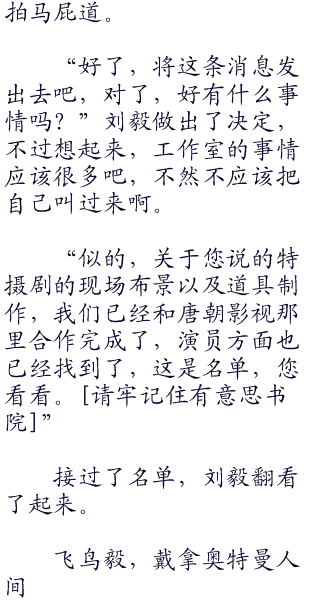 拍马屁道。
“好了，将这条消息发
出去吧，对了，好有什么事
情吗？”刘毅做出了决定，
不过想起来，工作室的事情
应该很多吧，不然不应该把
自己叫过来啊。
“似的，关于您说的特
摄剧的现场布景以及道具制
作，我们已经和唐朝影视那
里合作完成了，演员方面也
已经找到了，这是名单，您
看看。[请牢记住有意思书
院]”
接过了名单，刘毅翻看
了起来。
飞鸟毅，戴拿奥特曼人
间